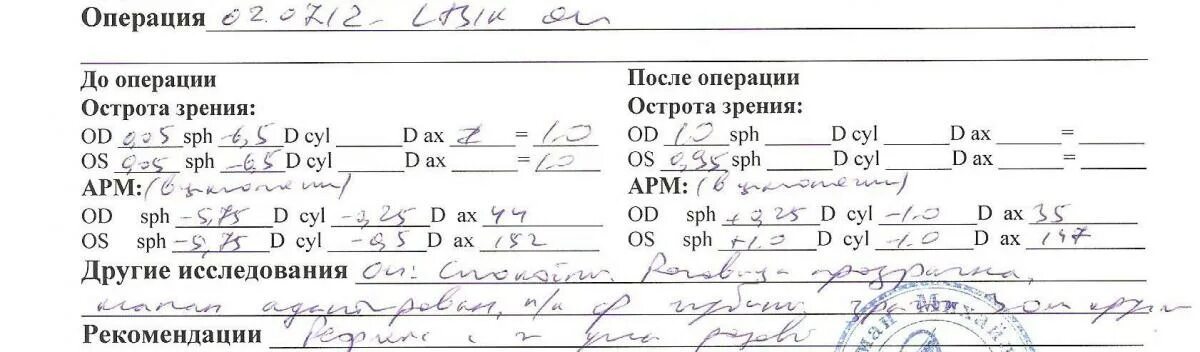 Операция 02.07.12 - LASIK OU
До операции После операции
Острота зрения: Острота зрения:
OD 0,05 sph -6,5 D cyl D ax = 1.0 OD 1.0 sph D cyl D ax =
OS 0,05 sph -6,5 D cyl D ax = 1.0 OS 0,95 sph D cyl D ax =
АРМ: (в циклоплегии) АРМ: (в циклоплегии)
OD sph -5,75 D cyl -0,25 D ax 44 OD sph +0,25 D cyl -1.0 D ax 35
OS sph -5,75 D cyl -0,5 D ax 152 OS sph +1.0 D cyl -1.0 D ax 147
Другие исследования OU: Спокойны. Роговица прозрачна,
клапан адаптирован, п/к ср глубины,
Рекомендации